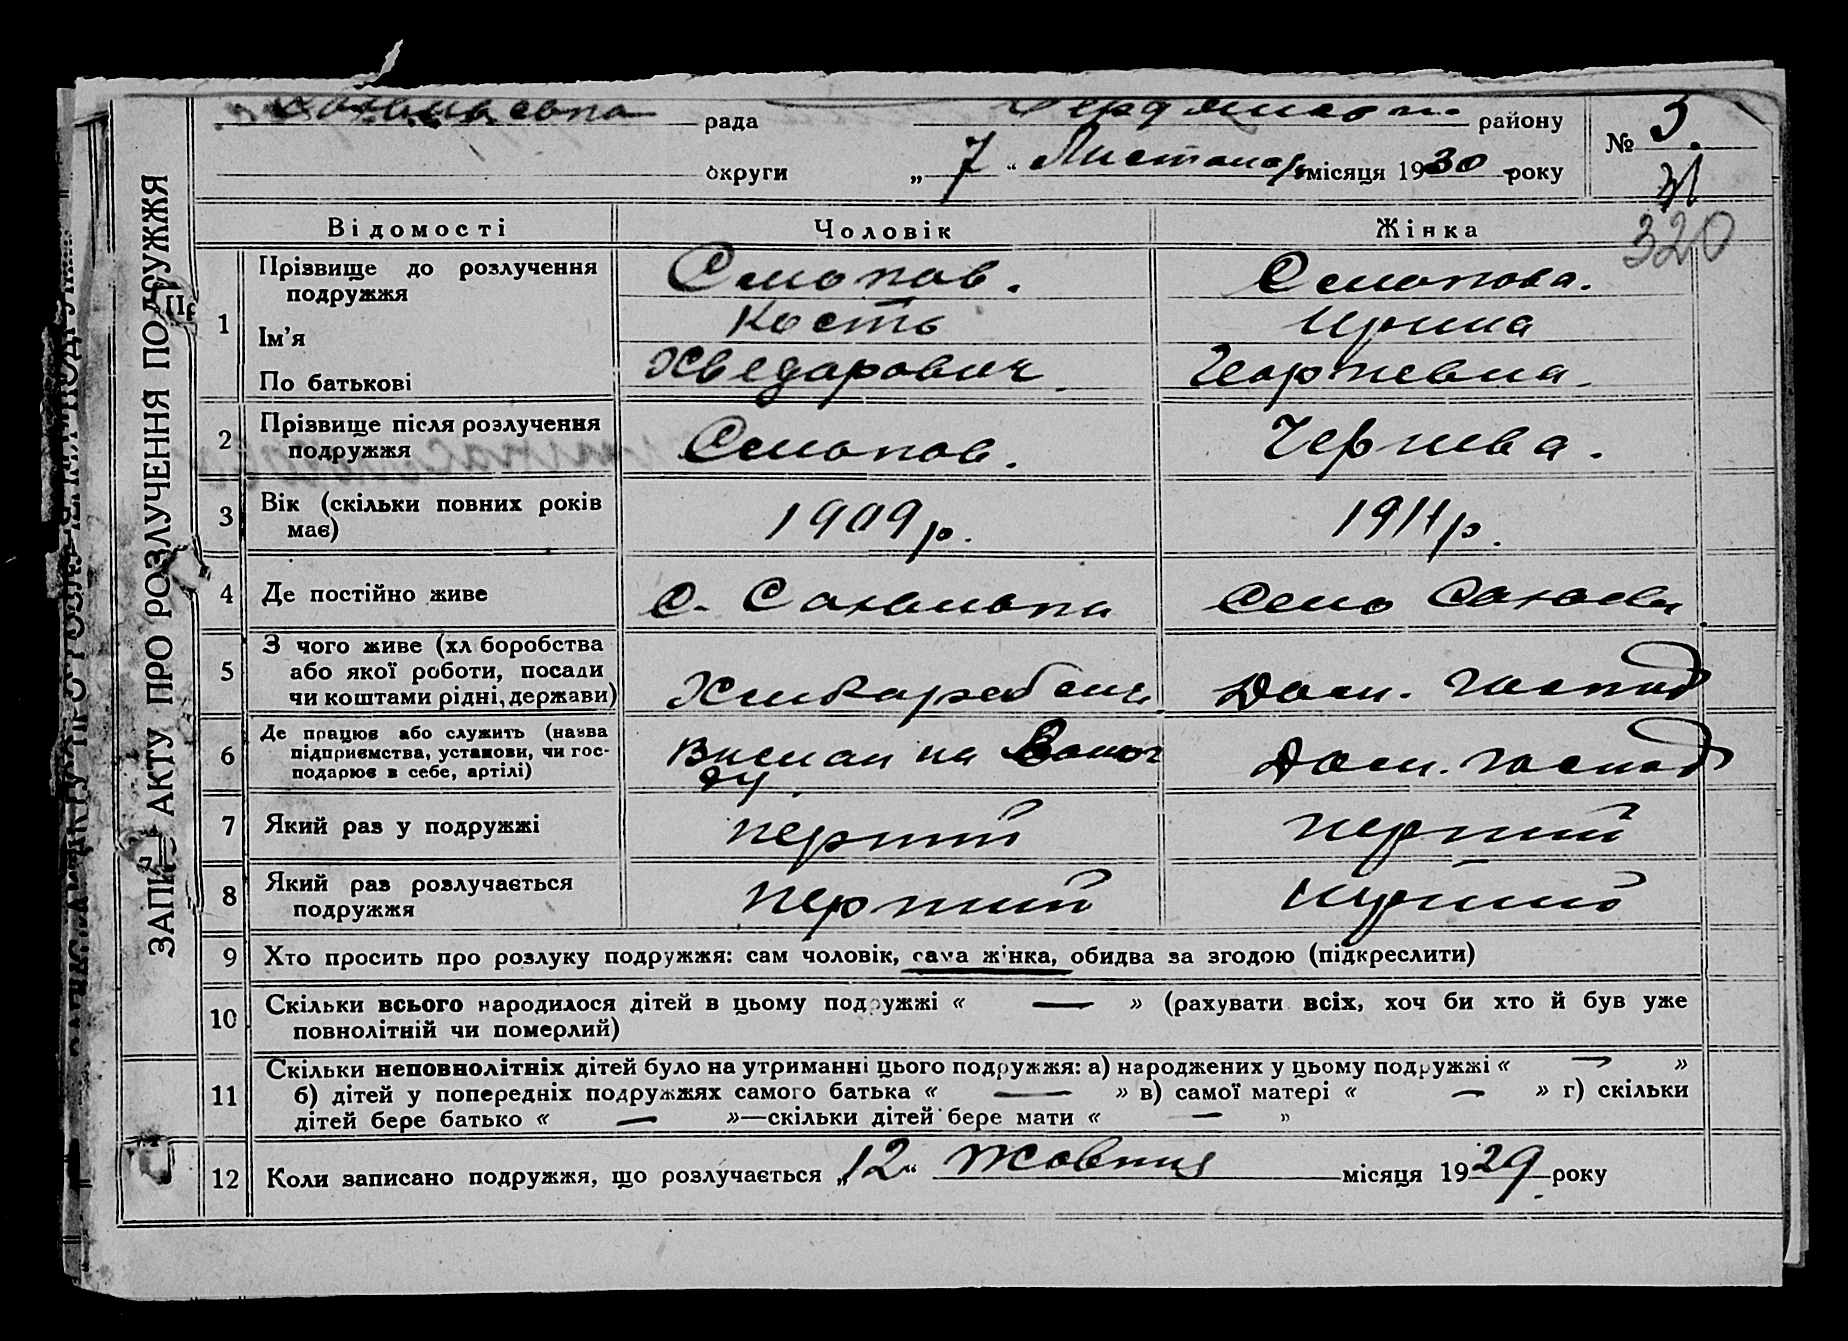 рада району № 3.
округи „ 7 “ Листопада місяця 1930 року
320
Відомості Чоловік Жінка
ЗАПИС АКТУ ПРО РОЗЛУЧЕННЯ ПОДРУЖЖЯ
1 Прізвище до розлучення
подружжя
Ім'я Кость Ирина
По батькові Хведорович Георгіевна.
2 Прізвище після розлучення
подружжя
3 Вік (скільки повних років 1909 р. 1911 р.
має)
4 Де постійно живе с. Село
5 З чого живе (хл боробства
або якої роботи, посади
чи коштами рідні, держави) Хлибароб Дом. господ
6 Де працює або служить (назва
підприємства, установи, чи гос- на Дом. господ
подарює в себе, артілі)
7 Який раз у подружжі перший перший
8 Який раз розлучається перший перший
подружжя
9 Хто просить про розлуку подружжя: сам чоловік, сама жінка, обидва за згодою (підкреслити)
10 Скільки всього народилося дітей в цьому подружжі « — » (рахувати всіх, хоч би хто й був уже
повнолітній чи померлий)
11 Скільки неповнолітніх дітей було на утриманні цього подружжя: а) народжених у цьому подружжі « — »
б) дітей у попередніх подружжях самого батька « — » в) самої матері « — » г) скільки
дітей бере батько « — »—скільки дітей бере мати « — »
12 Коли записано подружжя, що розлучається „ 12 “ Жовтня місяця 1929 року